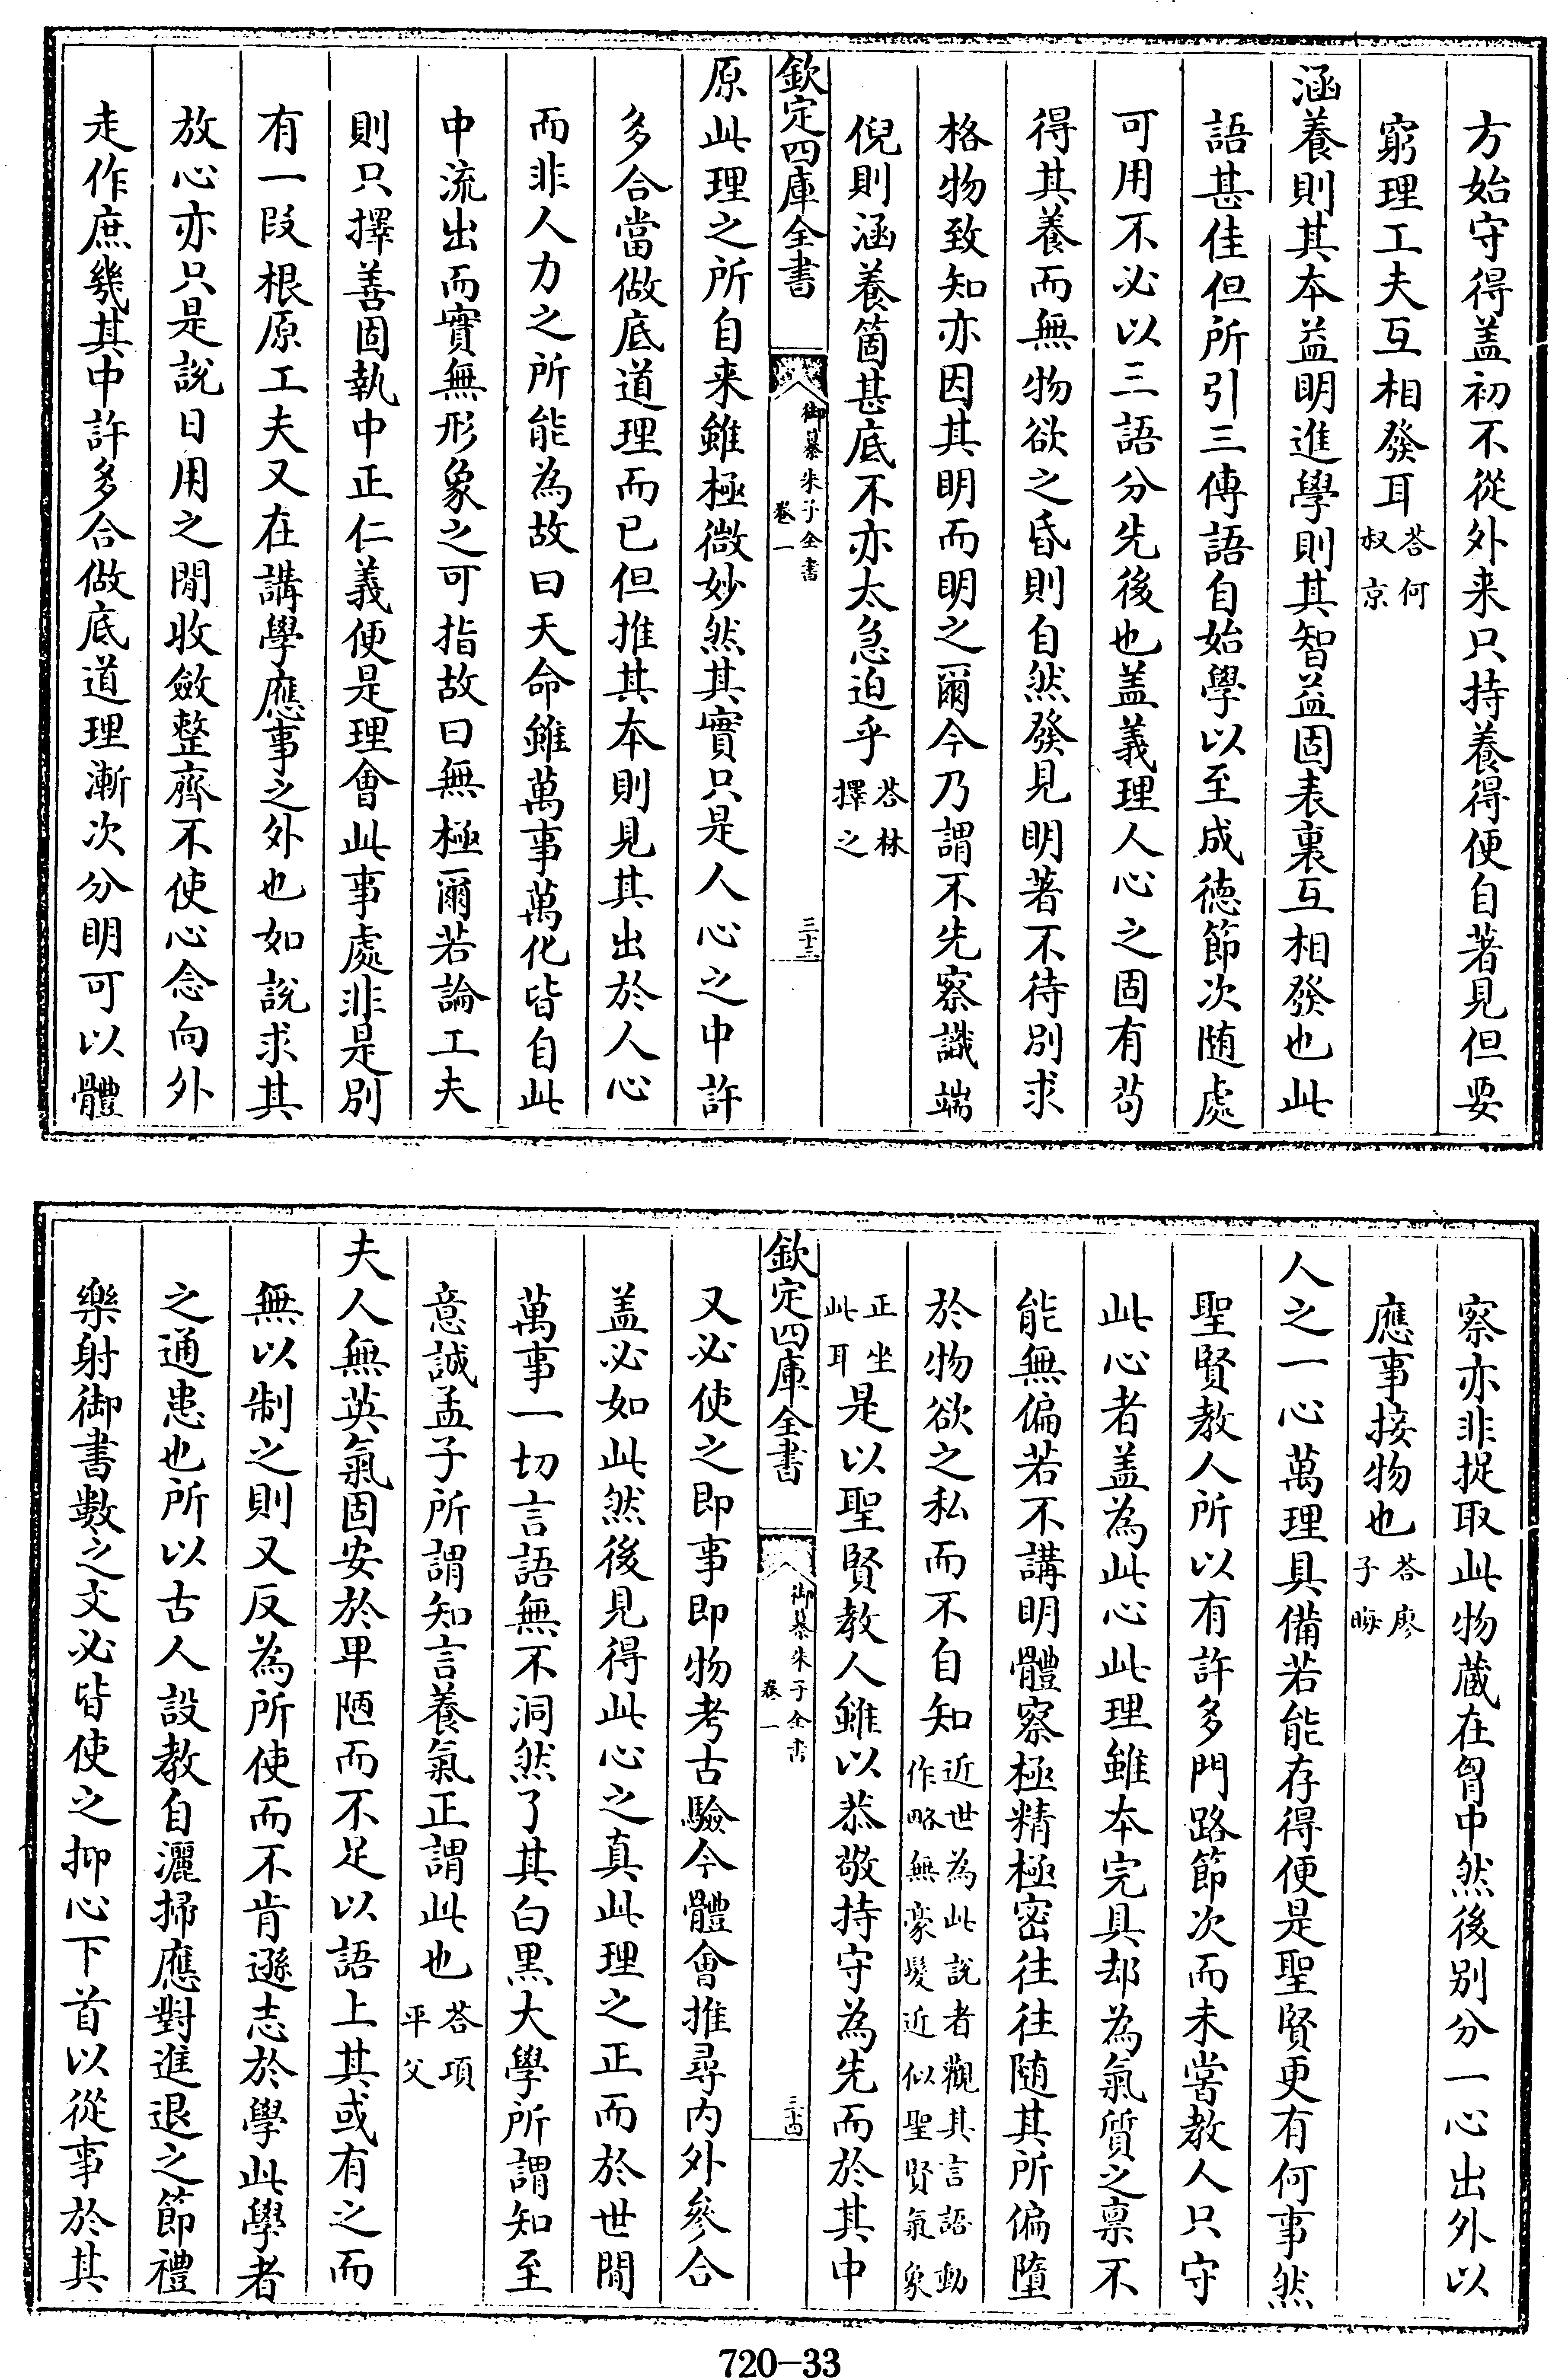 方始守得盖初不從外来只持養得便自著見但要
窮理工夫互相發耳答何叔京
涵養則其本益明進學則其智益固表裏互相發也此
語甚佳但所引三傳語自始學以至成德節次随處
可用不必以三語分先後也盖義理人心之固有茍
得其養而無物欲之昏則自然發見明著不待別求
格物致知亦因其明而明之爾今乃謂不先察識端
倪則涵養箇甚底不亦太急迫乎答林擇之
欽定四庫全書
御纂朱子全書
卷一
三十三
原此理之所自来雖極微妙然其實只是人心之中許
多合當做底道理而已但推其本則見其出於人心
而非人力之所能為故曰天命雖萬事萬化皆自此
中流出而實無形象之可指故曰無極爾若論工夫
則只擇善固執中正仁義便是理會此事處非是別
有一段根原工夫又在講學應事之外也如說求其
放心亦只是說日用之間收斂整齊不使心念向外
走作庶幾其中許多合做底道理漸次分明可以體
察亦非捉取此物蔵在胷中然後別分一心出外以
應事接物也答廖子晦
人之一心萬理具備若能存得便是聖賢更有何事然
聖賢教人所以有許多門路節次而未嘗教人只守
此心者盖為此心此理雖本完具却為氣質之禀不
能無偏若不講明體察極精極密往往随其所偏墮
於物欲之私而不自知近世為此說者觀其言語動作略無豪髮近似聖賢氣象
正坐此耳是以聖賢教人雖以恭敬持守為先而於其中
欽定四庫全書
御纂朱子全書
卷一
三十四
又必使之即事即物考古驗今體會推尋内外參合
盖必如此然後見得此心之真此理之正而於世間
萬事一切言語無不洞然了其白黑大學所謂知至
意誠孟子所謂知言養氣正謂此也答項平父
夫人無英氣固安於卑陋而不足以語上其或有之而
無以制之則又反為所使而不肯遜志於學此學者
之通患也所以古人設教自灑掃應對進退之節禮
樂射御書數之文必皆使之抑心下首以從事於其
720-33